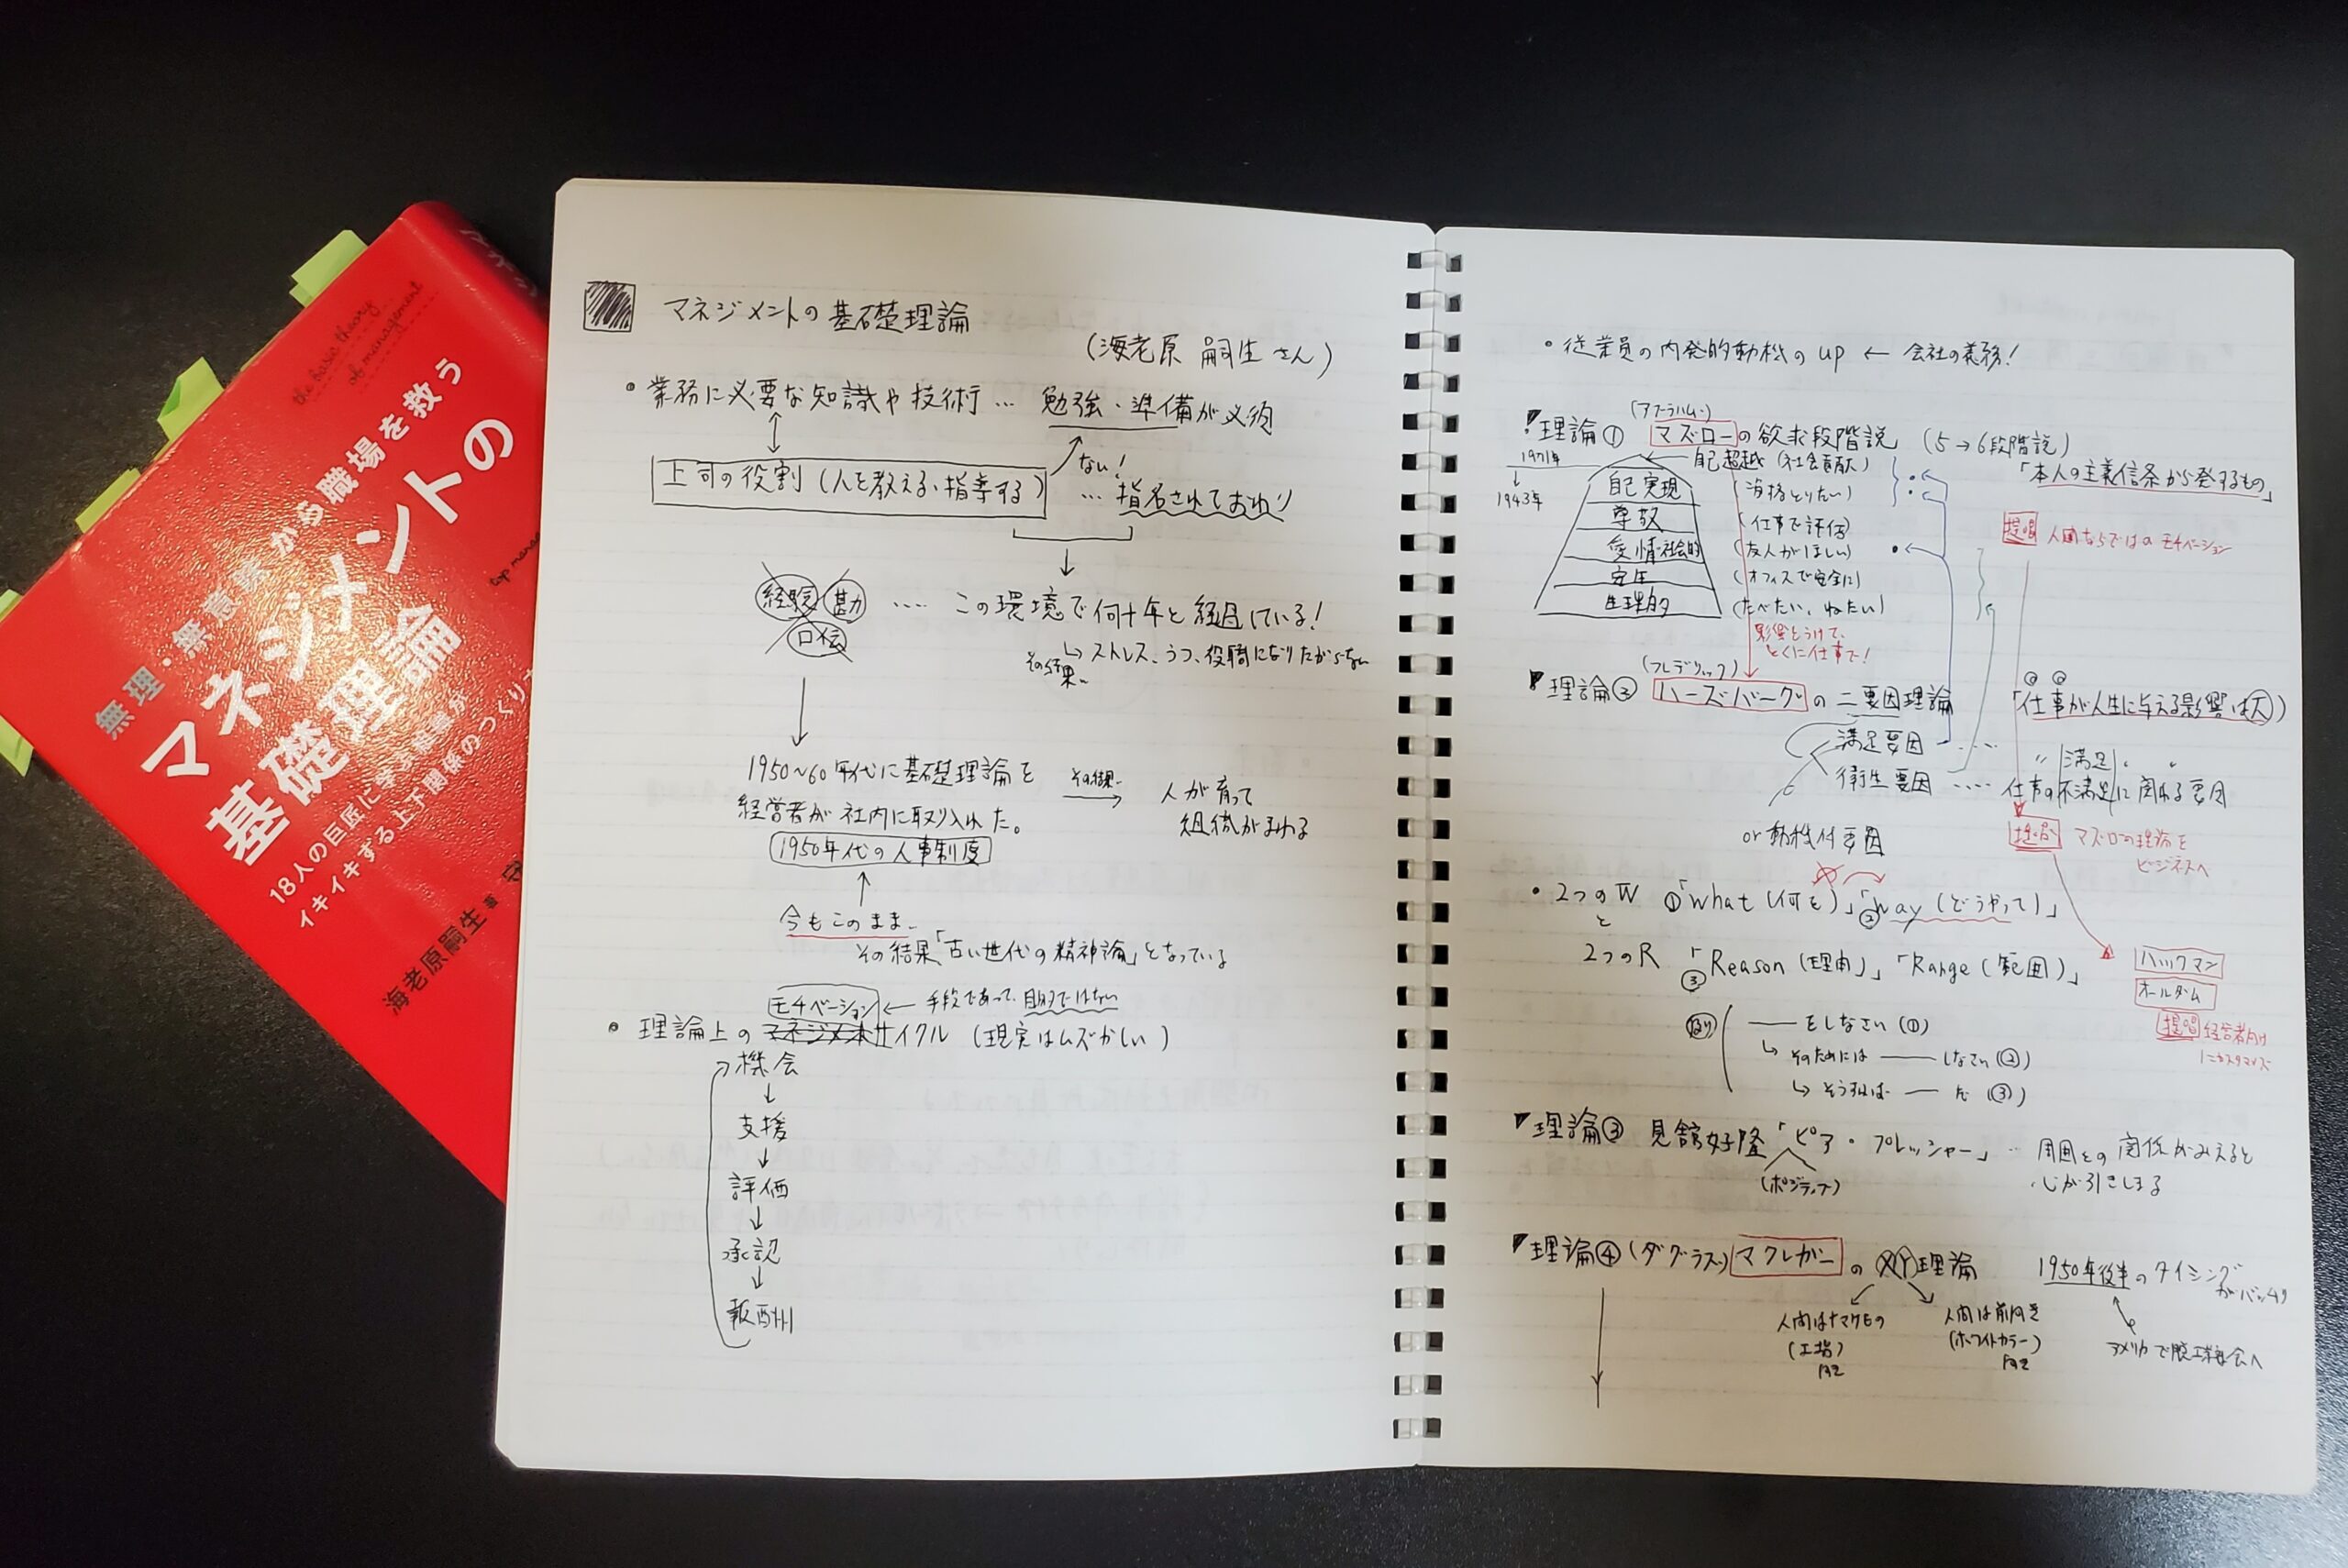 the basic theory
of management
無理・無意味から職場を救う
マネジメントの
基礎理論
18人の巨匠に学ぶ組織が
イキイキする上下関係のつくり方
海老原嗣生 著
マネジメントの基礎理論
(海老原 嗣生 さん)
・業務に必要な知識や技術 … 勉強・準備が必須
上司の役割 (人を教える、指導する)
ない!
… 指名されておわり
経験 勘
口伝
…. この環境で何十年と経過している!
その結果..
↳ ストレス、うつ、役職になりたがらない
1950~60年代に基礎理論を
経営者が社内に取り入れた。
その結果..
→
人が育って
組織がまわる
1950年代の人事制度
今もこのまま..
その結果、「古い世代の精神論」となっている
モチベーション ← 手段であって、目的ではない
・理論上の マネジメント サイクル (現実はムズかしい)
機会
↓
支援
↓
評価
↓
承認
↓
報酬
・従業員の内発的動機のup ← 会社の義務!
(アブラハム)
理論① マズローの欲求段階説 (5→6段階説)
1971年
↓
1943年
自己超越 (社会貢献)
「本人の主義信条から発するもの」
自己実現 (資格とりたい)
尊敬 (仕事で評価)
愛情・社会的 (友人がほしい)
安全 (オフィスで安全に)
生理的 (たべたい、ねたい)
提唱 人間ならではのモチベーション
影響をうけて、
とくに仕事で!
(フレデリック)
理論② ハーズバーグの二要因理論
「仕事が人生に与える影響は大」
満足要因 …. 〃 満足 〃
衛生要因 …. 仕事の不満足に関わる要因
or 動機付要因
提唱 マズローの理論を
ビジネスへ
・2つのW ①「What (何を)」②「Way (どうやって)」
と
2つのR ③「Reason (理由)」「Range (範囲)」
ハックマン
オールダム
提唱 経営者向け
にカスタマイズ
―― をしなさい (①)
↳ そのためには ―― しなさい (②)
↳ そうすれば ―― だ (③)
理論③ 見舘好隆「ピア・プレッシャー」… 周囲との関係がみえると
心が引きしまる
(ポジティブ)
理論④ (ダグラス) マクレガーの XY理論
1950年後半のタイミング
がバッチリ
人間はナマケもの
(工場)
人間は前向き
(ホワイトカラー)
アメリカで脱工業社会へ